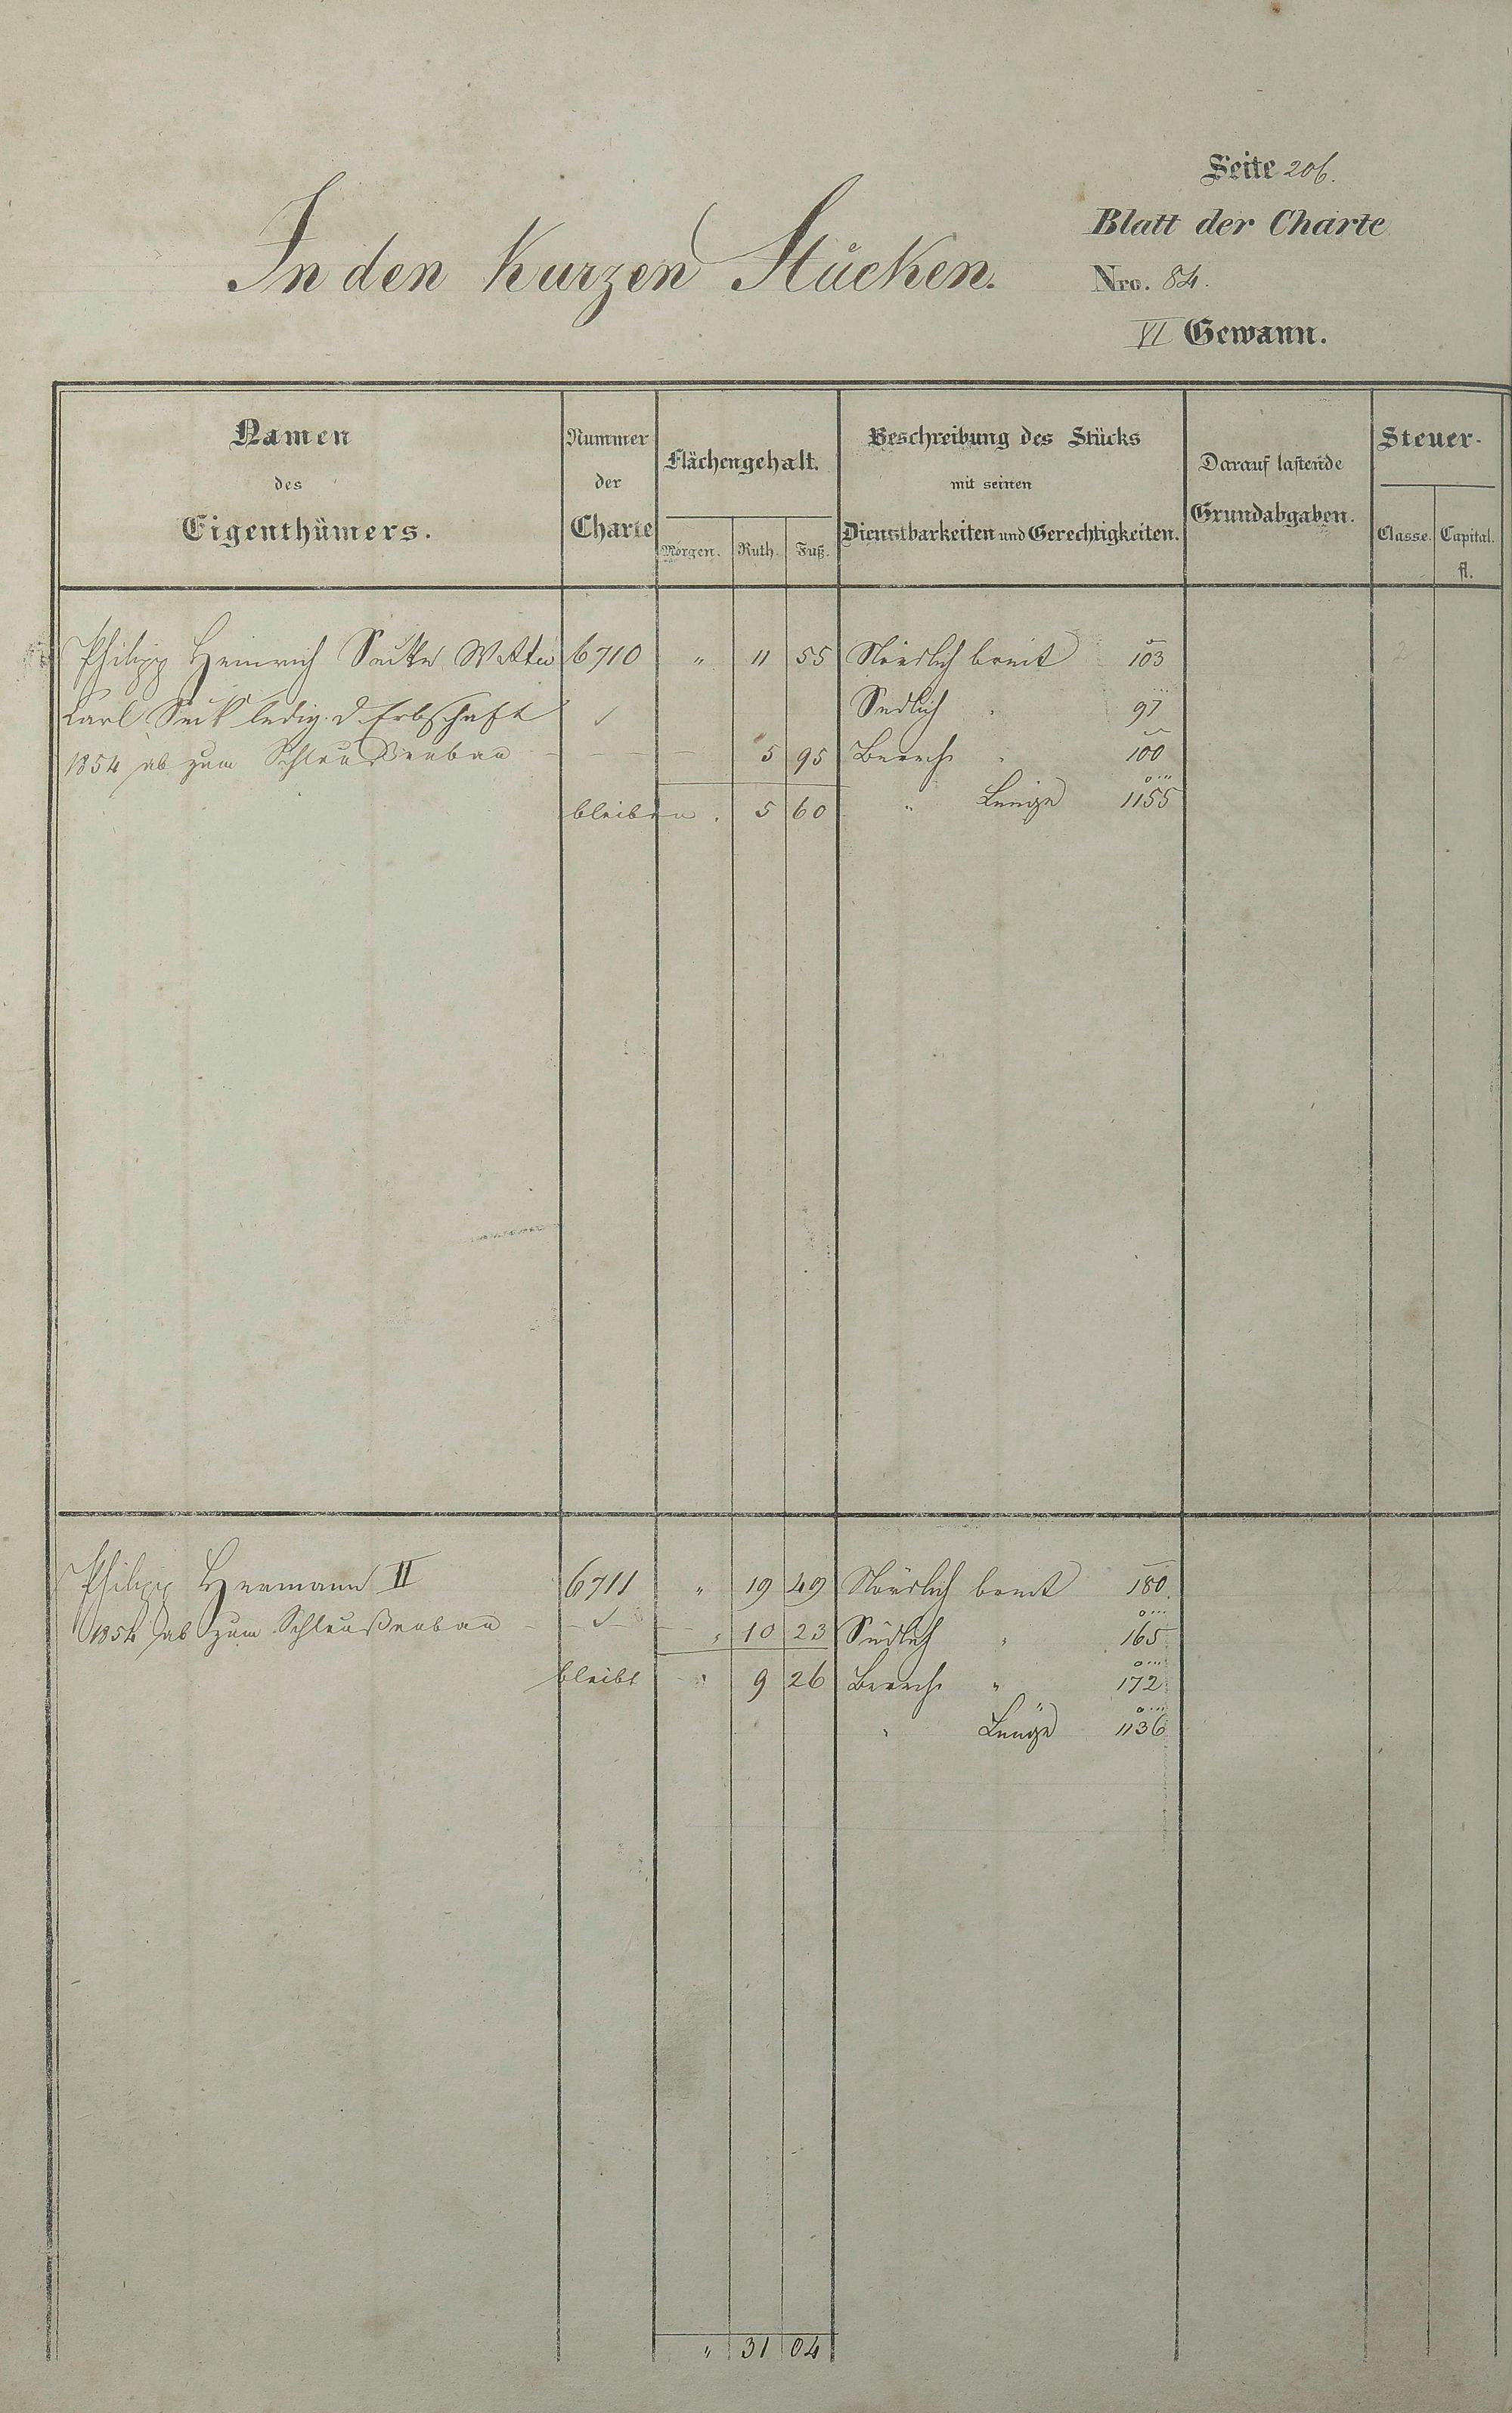 Seite 206.
Blatt der Charte
In den Kurzen Stücken.
Nro. 84.
VI Gewann.
Namen des Eigenthümers.
Nummer der Charte
Flächengehalt.
Morgen. Ruth. Fuß.
Beschreibung des Stücks mit seinen Dienstbarkeiten und Gerechtigkeiten.
Darauf lastende Grundabgaben.
Steuer-
Classe. Capital. fl.
Philipp Heinrich 6710 " 11 55 Nördlich breit 103 2
Karl Seik ledig. d. Erbschaft ✓ Südlich " 97
1854 ab zum Schleußenbau - - - - 5 95 100
bleiben . 5 60 " Länge 1155
Philipp Hermann II 6711 " 19 49 Nördlich breit 180 2
1854 ab zum Schleußenbau - ✓ - " 10 23 Südlich " 165
bleibt " 9 26 " 172
" Länge 1136
" 31 04